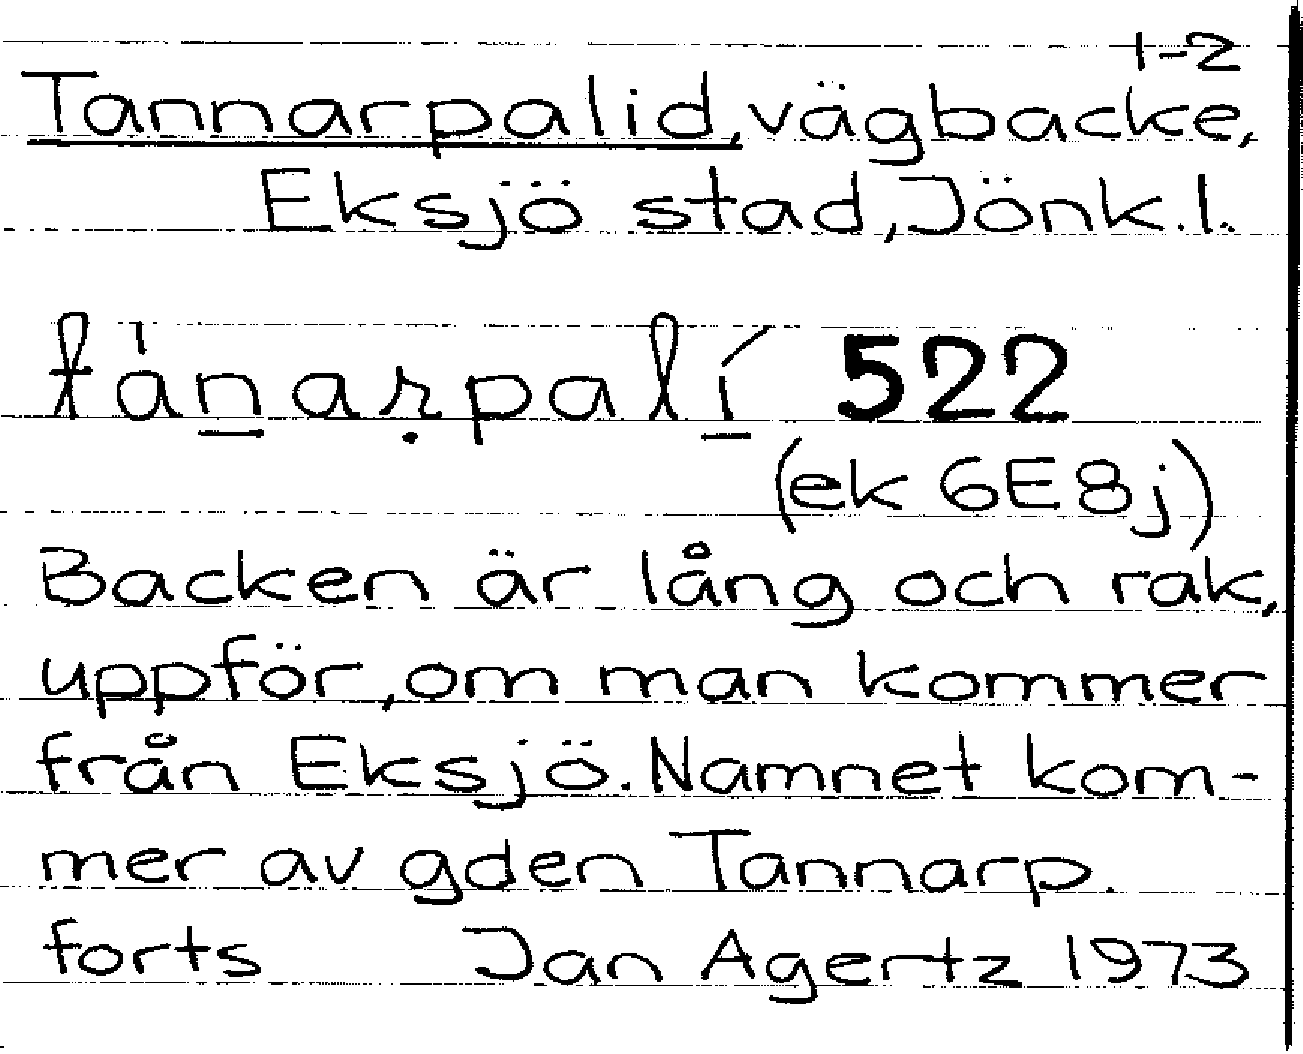 1-2
Tannarpalid, vägbacke,
Eksjö stad, Jönk.l.
522
(ek 6E8j)
Backen är lång och rak,
uppför, om man kommer
från Eksjö. Namnet kom-
mer av gden Tannarp.
forts Jan Agertz 1973